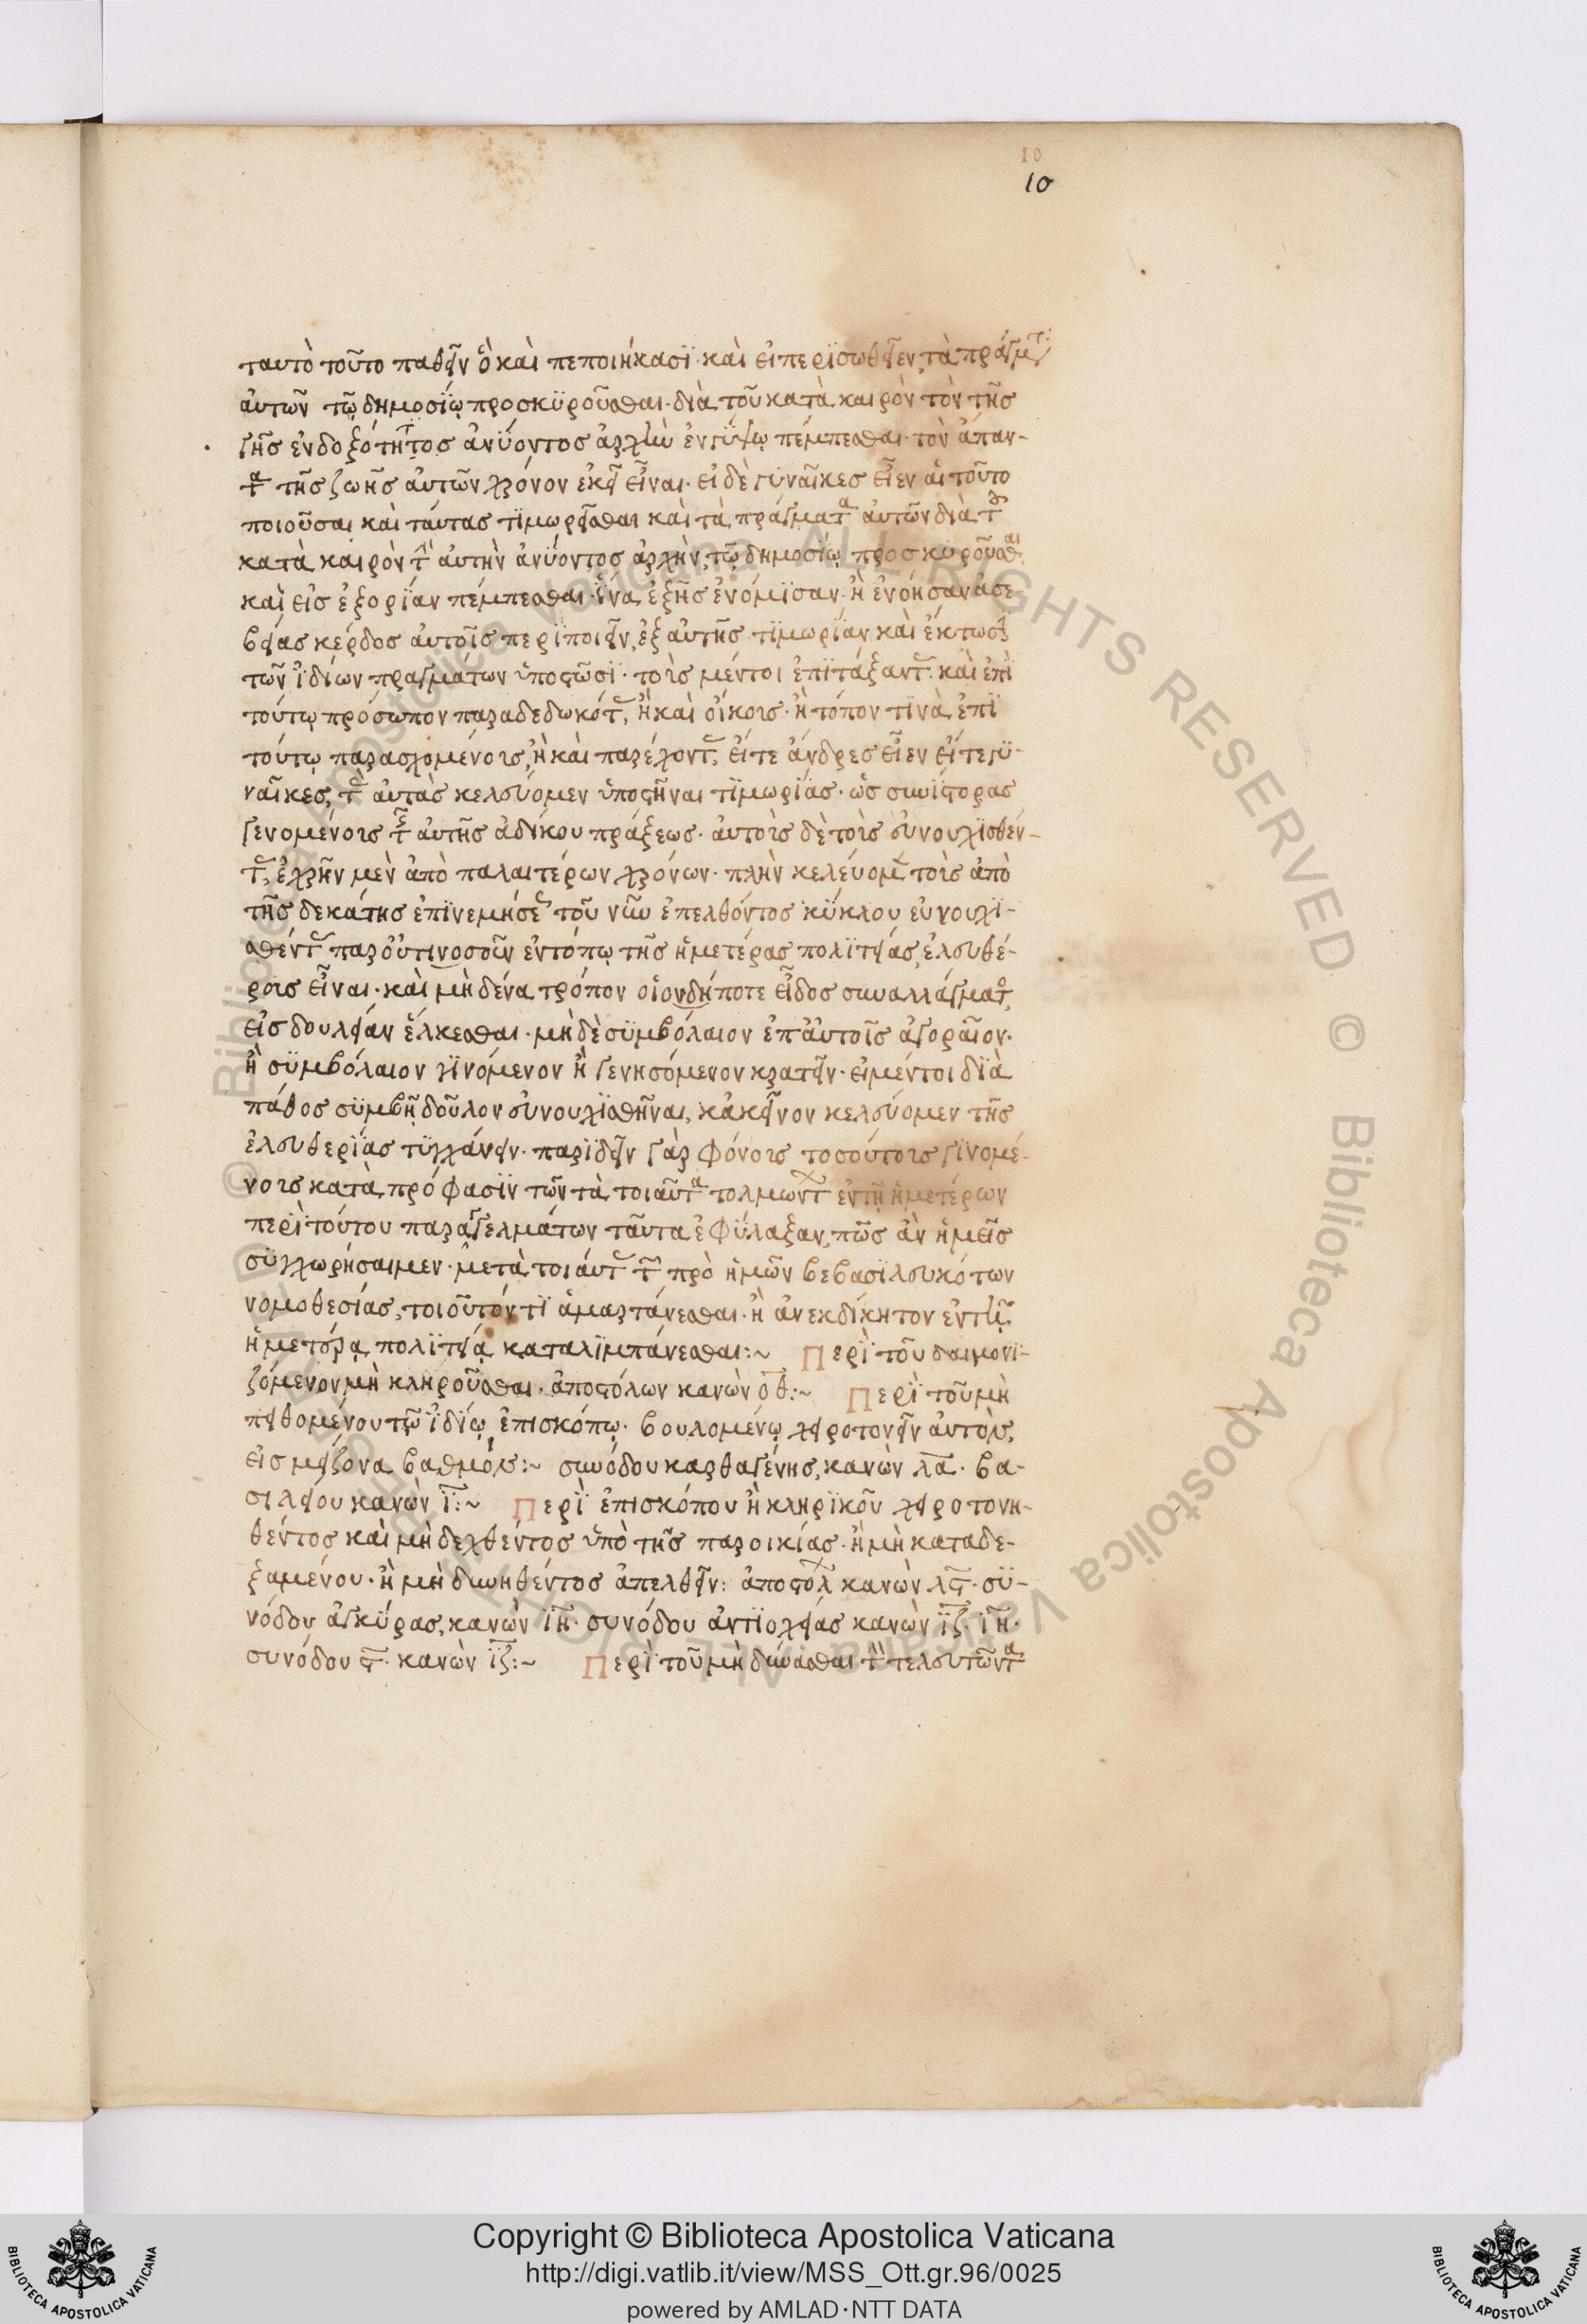 10
10
ταυτὸ τοῦτο παθεῖν ὃ καὶ πεποιήκασϊ· καὶ εἰ περϊσωθεῖεν, τὰ πράγμτ
ἀυτῶν τῷ δημοσίῳ προσκϋροῦσθαι· διὰ τοῦ κατὰ καιρὸν τὸν τῆς
γῆς ἐνδοξότητος ἀνύοντος ἀρχὴν ἐν πέμπεσθαι· τὸν ἅπαν-
τα τῆς ζωῆς ἀυτῶν χρόνον ἐκεῖ εἶναι· εἰ δὲ γυναῖκες εἶεν αἱ τοῦτο
ποιοῦσαι καὶ ταύτας τϊμωρεῖσθαι καὶ τὰ πράγματα ἀυτῶν διὰ τ
κατὰ καιρὸν τ ἀυτὴν ἀνύοντος ἀρχὴν, τῷ δημοσίῳ προσκυροῦσθαι
καὶ εἰς ἐξορίαν πέμπεσθαι· ἵνα ἐξ ἧς ἐνόμϊσαν· ἢ ἐνόησαν ἀσε-
βείας κέρδος ἀυτοῖς περϊποιεῖν, ἐξ ἀυτῆς τϊμωρίαν καὶ ἔκτωσ
τῶν ἰδίων πραγμάτων ὑποστῶσϊ· τοὺς μέντοι ἐπϊτάξαντ καὶ ἐπὶ
τούτῳ πρόσωπον παραδεδωκότ, ἢ καὶ οἴκους· ἢ τόπον τϊνὰ ἐπὶ
τούτῳ παρασχομένους, ἢ καὶ παρέχοντ, εἴτε ἄνδρες εἶεν εἴτε γϋ-
ναῖκες, τ ἀυτὰς κελεύομεν ὑποστῆναι τϊμωρίας· ὡς συνίστορας
γενομένους τ ἀυτῆς ἀδίκου πράξεως· ἀυτοὺς δὲ τοὺς εὐνουχϊσθέν-
τ, ἐχρῆν μὲν ἀπὸ παλαιτέρων χρόνων· πλὴν κελεύομ τοὺς ἀπὸ
τῆς δεκάτης ἐπϊνεμήσε τοῦ νῦν ἐπελθόντος κύκλου εὐνουχϊ-
σθέντ παρ' οὑτινοσοῦν ἐν τόπῳ τῆς ἡμετέρας πολϊτείας, ἐλευθέ-
ρους εἶναι· καὶ μὴδένα τρόπον οἱονδήποτε εἶδος συναλλάγματ,
εἰς δουλείαν ἕλκεσθαι· μὴδὲ σϋμβόλαιον ἐπ' ἀυτοῖς ἀγοραῖον·
ἢ σϋμβόλαιον γϊνόμενον ἢ γενησόμενον κρατεῖν· εἰ μέντοι δϊὰ
πάθος σϋμβῇ δοῦλον εὐνουχϊσθῆναι, κἀκεῖνον κελεύομεν τῆς
ἐλευθερίας τϋγχάνειν· παρϊδεῖν γὰρ φόνους τοσούτους γϊνομέ-
νους κατὰ πρόφασϊν τῶν τὰ τοιαῦτα τολμώντ ἐν τῇ ἡμετέρων
περὶ τούτου παραγγελμάτων ταῦτα ἐφύλαξαν, πῶς ἂν ἡμεῖς
σϋγχωρήσαιμεν· μετὰ τοιάυτ τ πρὸ ἡμῶν βεβασϊλευκότων
νομοθεσίας, τοιοῦτόν τϊ ἁμαρτάνεσθαι· ἢ ἀνεκδίκητον ἐν τῇ
ἡμετέρᾳ πολϊτείᾳ καταλϊμπάνεσθαι:~ Περὶ τοῦ δαιμονϊ-
ζόμενον μὴ κληροῦσθαι· ἀποστόλων κανὼν οθ:~ Περὶ τοῦ μὴ
πειθομένου τῷ ἰδίῳ ἐπισκόπῳ· βουλομένῳ χειροτονεῖν ἀυτὸν,
εἰς μείζονα βαθμόν:~ συνόδου καρθαγένης, κανὼν λα· βα-
σιλείου κανὼν ϊ:~ Περὶ ἐπισκόπου ἢ κληρϊκοῦ χειροτονη-
θέντος καὶ μὴ δεχθέντος ὑπὸ τῆς παροικίας· ἢ μὴ καταδε-
ξαμένου· ἢ μὴ δυνηθέντος ἀπελθεῖν: ἀποστόλ κανὼν λϛ· σϋ-
νόδου ἀγκύρας, κανὼν ϊη· συνόδου ἀντϊοχείας κανὼν ϊζ· ϊη·
συνόδου ϛ· κανὼν ϊζ:~ Περὶ τοῦ μὴ δύνασθαι τ τελευτῶντα
© Biblioteca Apostolica Vaticana ALL RIGHTS RESERVED © Biblioteca Apostolica Vaticana
Copyright © Biblioteca Apostolica Vaticana
http://digi.vatlib.it/view/MSS_Ott.gr.96/0025
powered by AMLAD·NTT DATA
BIBLIOTECA APOSTOLICA VATICANA
BIBLIOTECA APOSTOLICA VATICANA